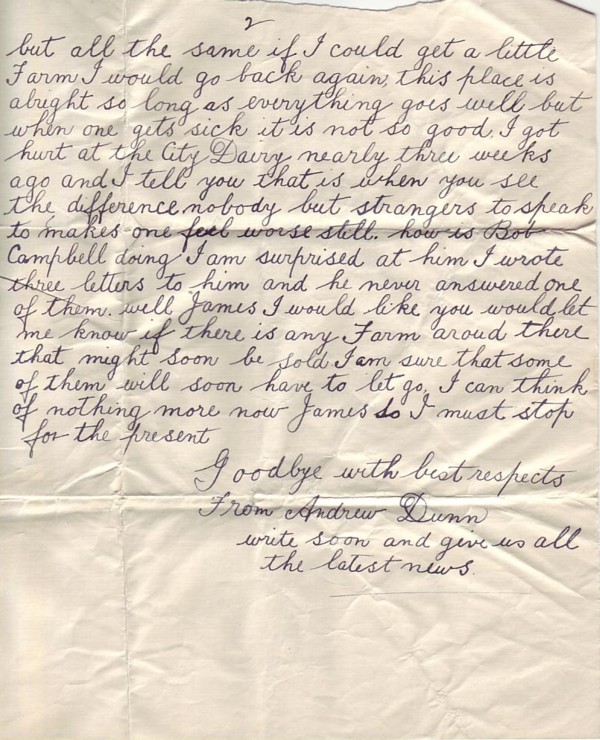 2
but all the same if I could get a little
Farm I would go back again, this place is
alright so long as everything goes well but
when one gets sick it is not so good, I got
hurt at the City Dairy nearly three weeks
ago and I tell you that is when you see
the difference, nobody but strangers to speak
to makes one feel worse still. how is Bob
Campbell doing I am surprised at him I wrote
three letters to him and he never answered one
of them. well James I would like you would let
me know if there is any Farm aroud there
that might soon be sold I am sure that some
of them will soon have to let go, I can think
of nothing more now James so I must stop
for the present
Goodbye with best respects
From Andrew Dunn
write soon and give us all
the latest news.